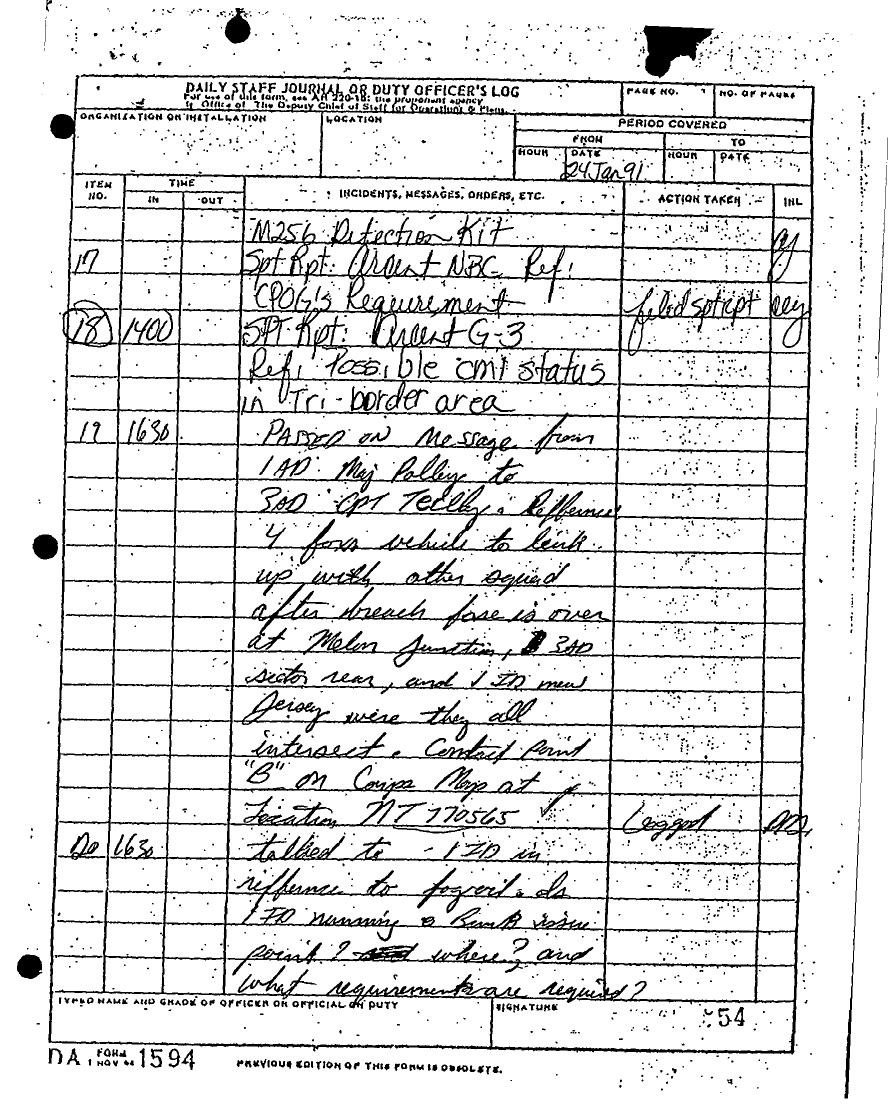 DAILY STAFF JOURNAL OR DUTY OFFICER'S LOG
For use of this form, see AR 220-15; the proponent agency
is Office of The Deputy Chief of Staff for Operations & Plans.
PAGE NO.
NO. OF PAGES
ORGANIZATION OR INSTALLATION
LOCATION
PERIOD COVERED
FROM
TO
HOUR
DATE
HOUR
DATE
24 Jan 91
ITEM NO.
TIME
IN
OUT
INCIDENTS, MESSAGES, ORDERS, ETC.
ACTION TAKEN
INL
M256 Detection Kit
17 Spt Rpt: Arcent NBC Ref:
CPOG's Requirement filed spt rpt
18 1400 SPT Rpt: Arcent G-3
Ref: Possible cml status
in Tri-border area
19 1630 PASSED ON Message from
1AD Maj Polley to
3AD CPT Teelly. Refference
4 foxs vehicle to link
up with other squad
after breach fase is over
at Melon Junction, 3AD
sector rear, and 1 ID new
Jersey were they all
intersect. Contact point
"B" on Map at
Location NT 770565 Logged
20 1630 talked to 1 ID in
refference to fogoil. Is
1 ID running a Bulk issue
point? where? and
what requirements are required?
TYPED NAME AND GRADE OF OFFICER OR OFFICIAL ON DUTY
SIGNATURE
54
DA FORM 1 NOV 1594
PREVIOUS EDITION OF THIS FORM IS OBSOLETE.